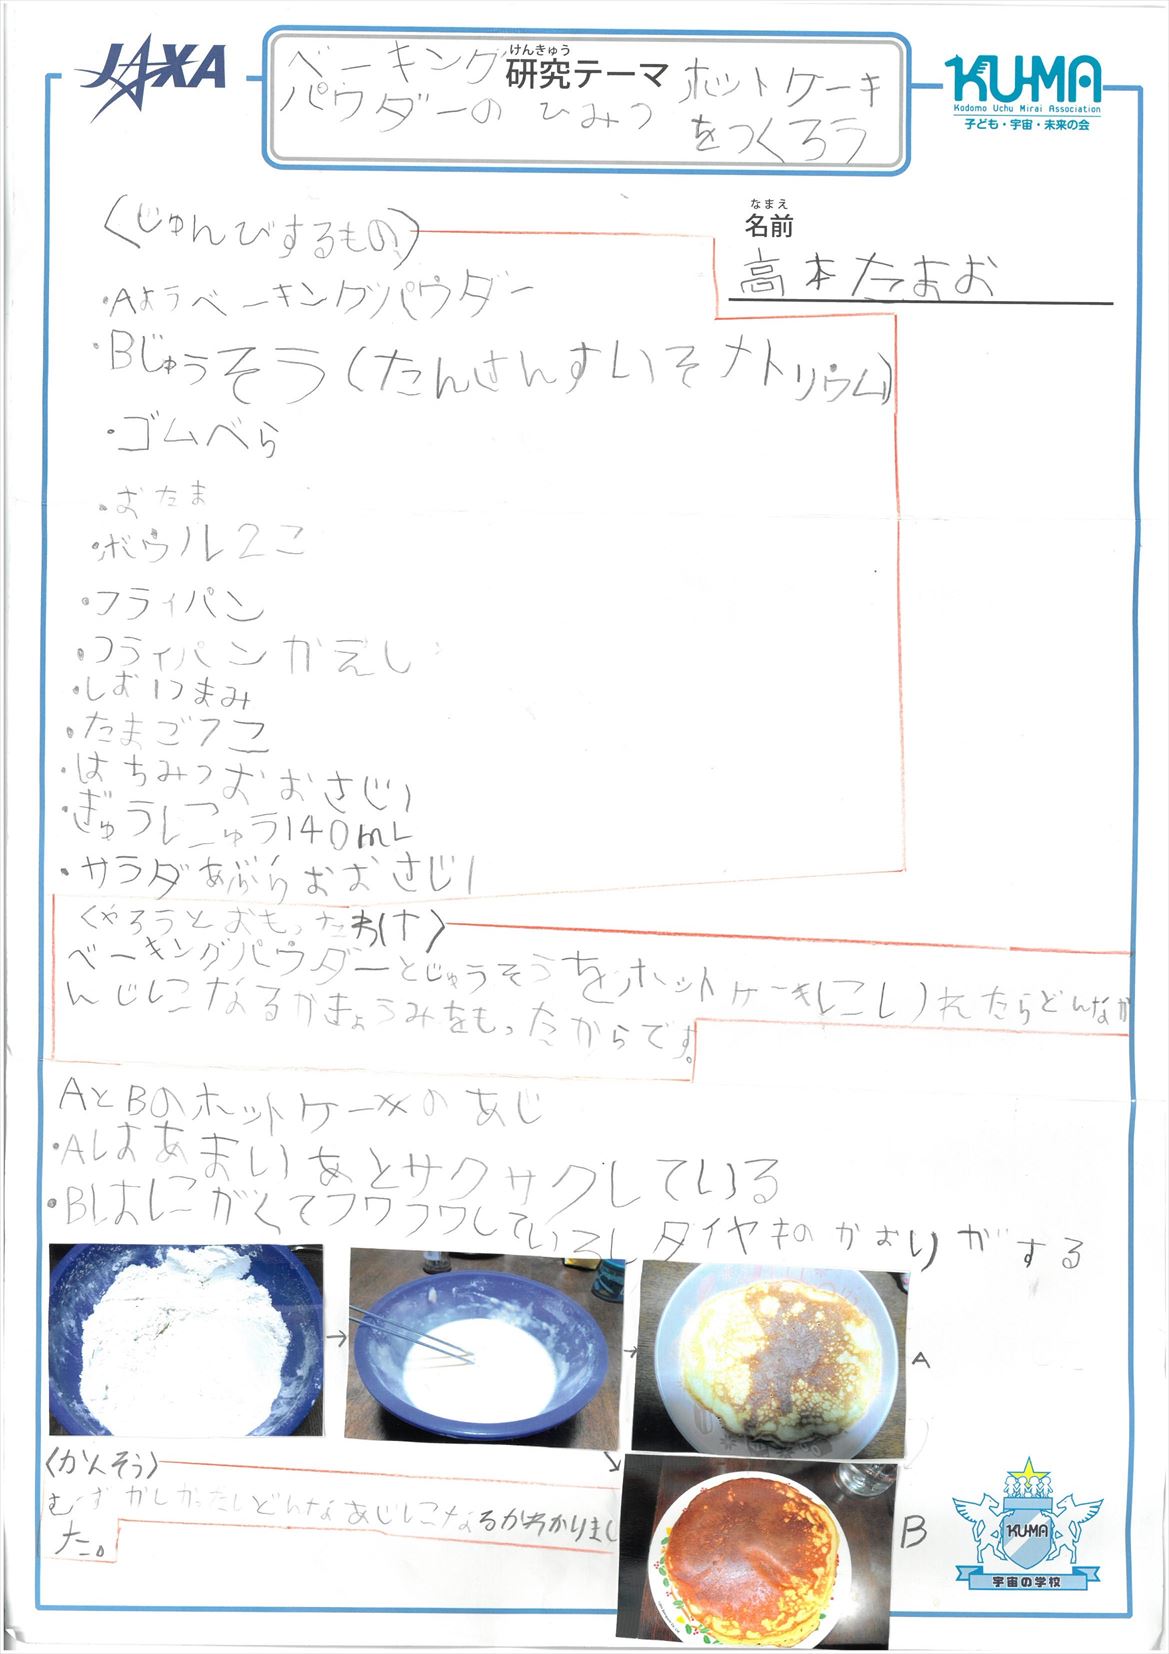 JAXA
けんきゅう
研究テーマ
ベーキング
パウダーの ひみつ
ホットケーキ
をつくろう
KU-MA
Kodomo Uchu Mirai Association
子ども・宇宙・未来の会
〈じゅんびするもの〉
なまえ
名前
高本たまお
・Aようベーキングパウダー
・Bじゅうそう(たんさんすいそナトリウム)
・ゴムべら
・おたま
・ボウル2こ
・フライパン
・フライパンかえし
・しお1つまみ
・たまご1こ
・はちみつおおさじ1
・ぎゅうにゅう140mL
・サラダあぶらおおさじ1
〈やろうとおもったわけ〉
ベーキングパウダーとじゅうそうをホットケーキにいれたらどんなか
んじになるかきょうみをもったからです。
AとBのホットケーキのあじ
・Aはあまいあとサクサクしている
・Bはにがくてフワフワしているしタイヤキのかおりがする
A
〈かんそう〉
むずかしかったしどんなあじになるかわかりまし
た。
B
KU-MA
宇宙の学校